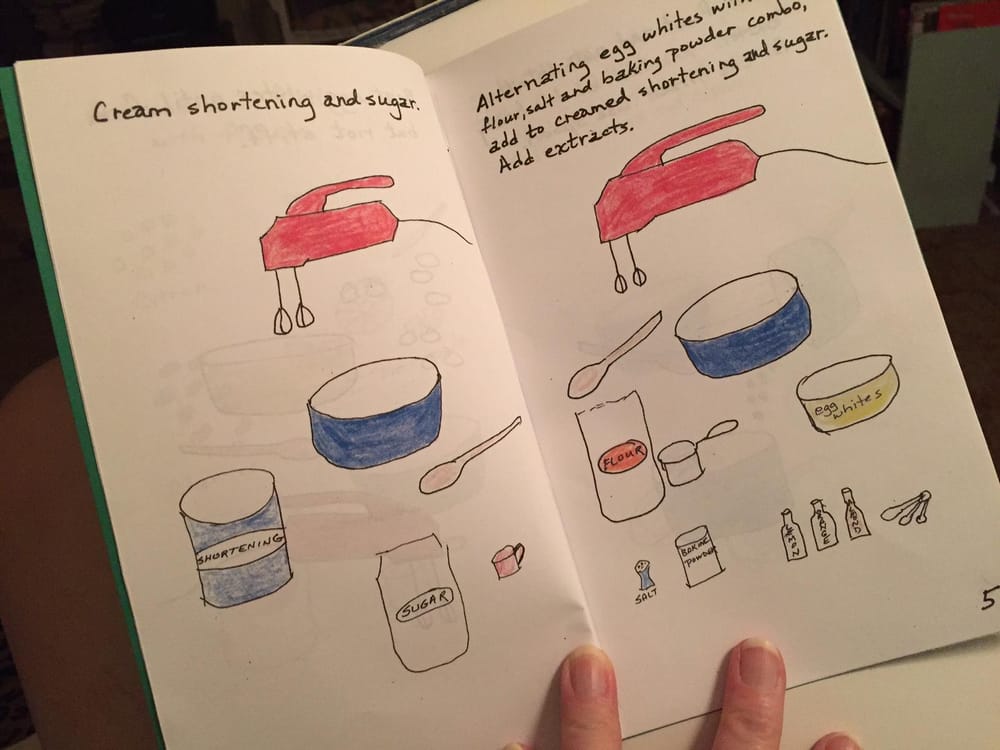 Cream shortening and sugar.
SHORTENING
SUGAR
Alternating egg whites with
flour, salt and baking powder combo,
add to creamed shortening and sugar.
Add extracts.
egg
whites
FLOUR
SALT
BAKING
Powder
LEMON
ORANGE
ALMOND
5